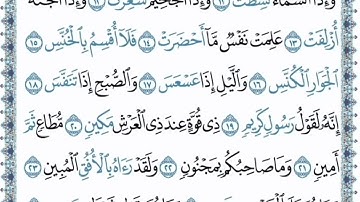 وَإِذَا ٱلسَّمَآءُ كُشِطَتْ ١١ وَإِذَا ٱلْجَحِيمُ سُعِّرَتْ ١٢ وَإِذَا ٱلْجَنَّةُ
أُزْلِفَتْ ١٣ عَلِمَتْ نَفْسٌ مَّآ أَحْضَرَتْ ١٤ فَلَآ أُقْسِمُ بِٱلْخُنَّسِ ١٥
ٱلْجَوَارِ ٱلْكُنَّسِ ١٦ وَٱلَّيْلِ إِذَا عَسْعَسَ ١٧ وَٱلصُّبْحِ إِذَا تَنَفَّسَ ١٨
إِنَّهُۥ لَقَوْلُ رَسُولٍ كَرِيمٍ ١٩ ذِى قُوَّةٍ عِندَ ذِى ٱلْعَرْشِ مَكِينٍ ٢٠ مُّطَاعٍ ثَمَّ
أَمِينٍ ٢١ وَمَا صَاحِبُكُم بِمَجْنُونٍ ٢٢ وَلَقَدْ رَءَاهُ بِٱلْأُفُقِ ٱلْمُبِينِ ٢٣